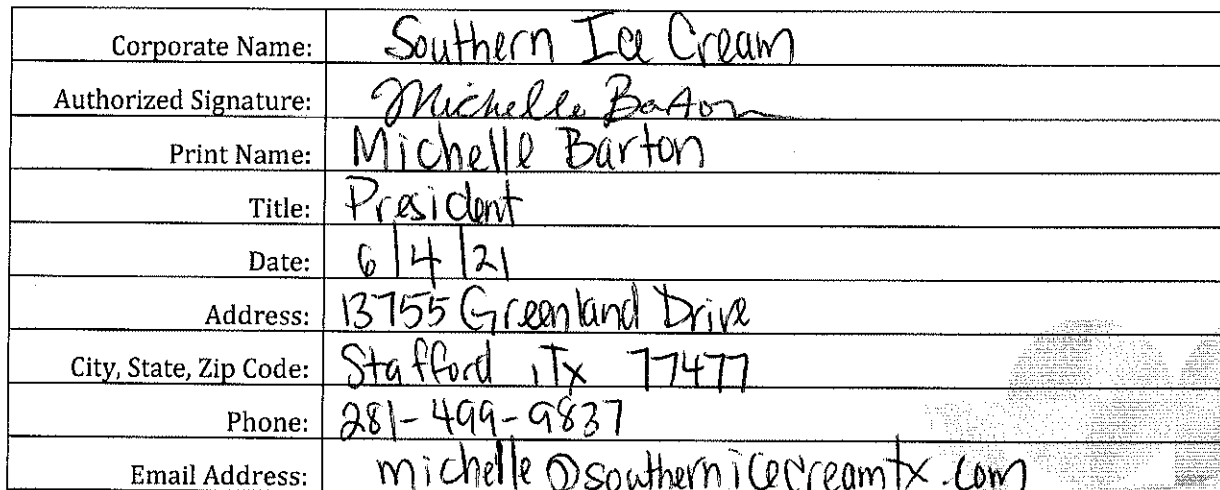 Corporate Name: Southern Ice Cream
Authorized Signature: Michelle Barton
Print Name: Michelle Barton
Title: President
Date: 6/4/21
Address: 13755 Greenland Drive
City, State, Zip Code: Stafford, Tx 77477
Phone: 281-499-9837
Email Address: michelle@southernicecreamtx.com